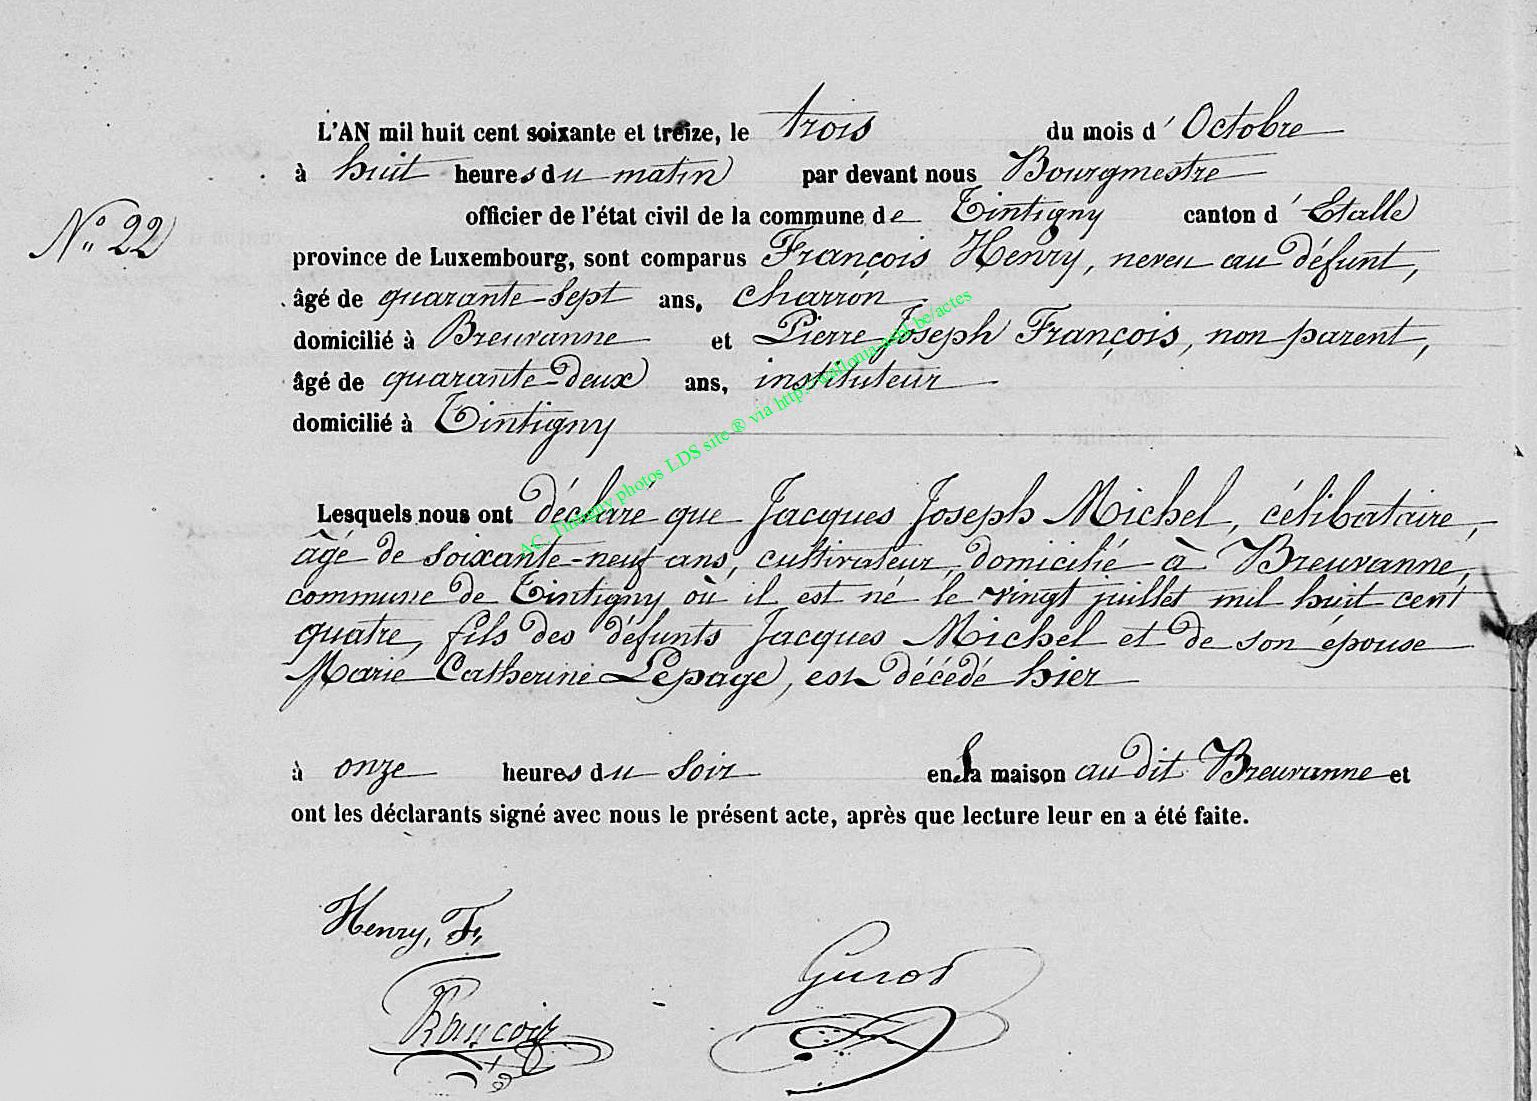 L'AN mil huit cent soixante et treize, le trois du mois d' Octobre
à huit heures du matin par devant nous Bourgmestre
N.° 22
officier de l'état civil de la commune de Tintigny canton d' Etalle
province de Luxembourg, sont comparus François Henry, neveu au défunt,
âgé de quarante-sept ans, charron
domicilié à Breuvanne et Pierre Joseph François, non parent,
âgé de quarante-deux ans, instituteur
domicilié à Tintigny
AC. Tintigny photos LDS site ® via http://wallonia-asbl.be/actes
Lesquels nous ont déclaré que Jacques Joseph Michel, célibataire,
âgé de soixante-neuf ans, cultivateur, domicilié à Breuvanne,
commune de Tintigny où il est né le vingt juillet mil huit cent
quatre, fils des défunts Jacques Michel et de son épouse
Marie Catherine Lepage, est décédé hier
à onze heures du soir en sa maison au dit Breuvanne et
ont les déclarants signé avec nous le présent acte, après que lecture leur en a été faite.
Henry, F,
François